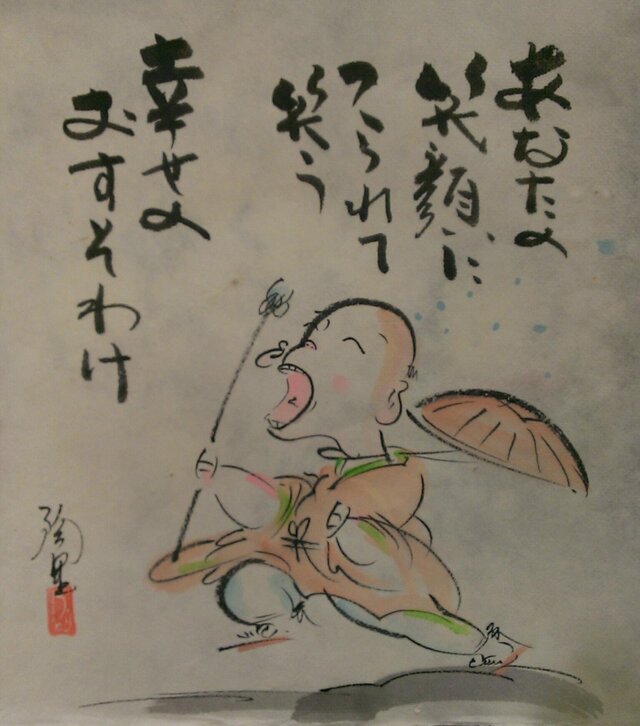 あなたの
笑顔に
つられて
笑う
幸せの
おすそわけ
陶里